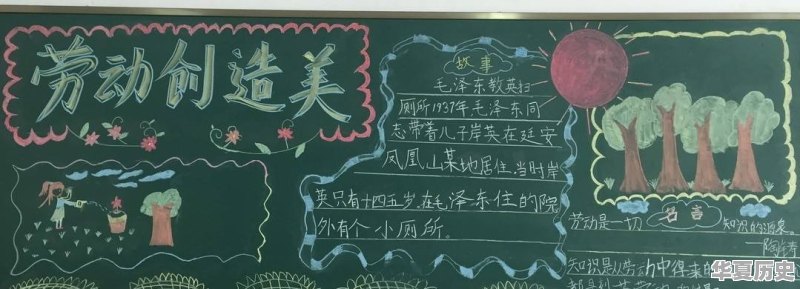 劳动创造美
故事
毛泽东教英扫
厕所1937年毛泽东同
志带着儿子岸英在延安
凤凰山某地居住.当时岸
英只有十四五岁.在毛泽东住的院
外有个小厕所.
名言
劳动是一切
知识的源泉.
知识是从劳动中得来的
华夏历史